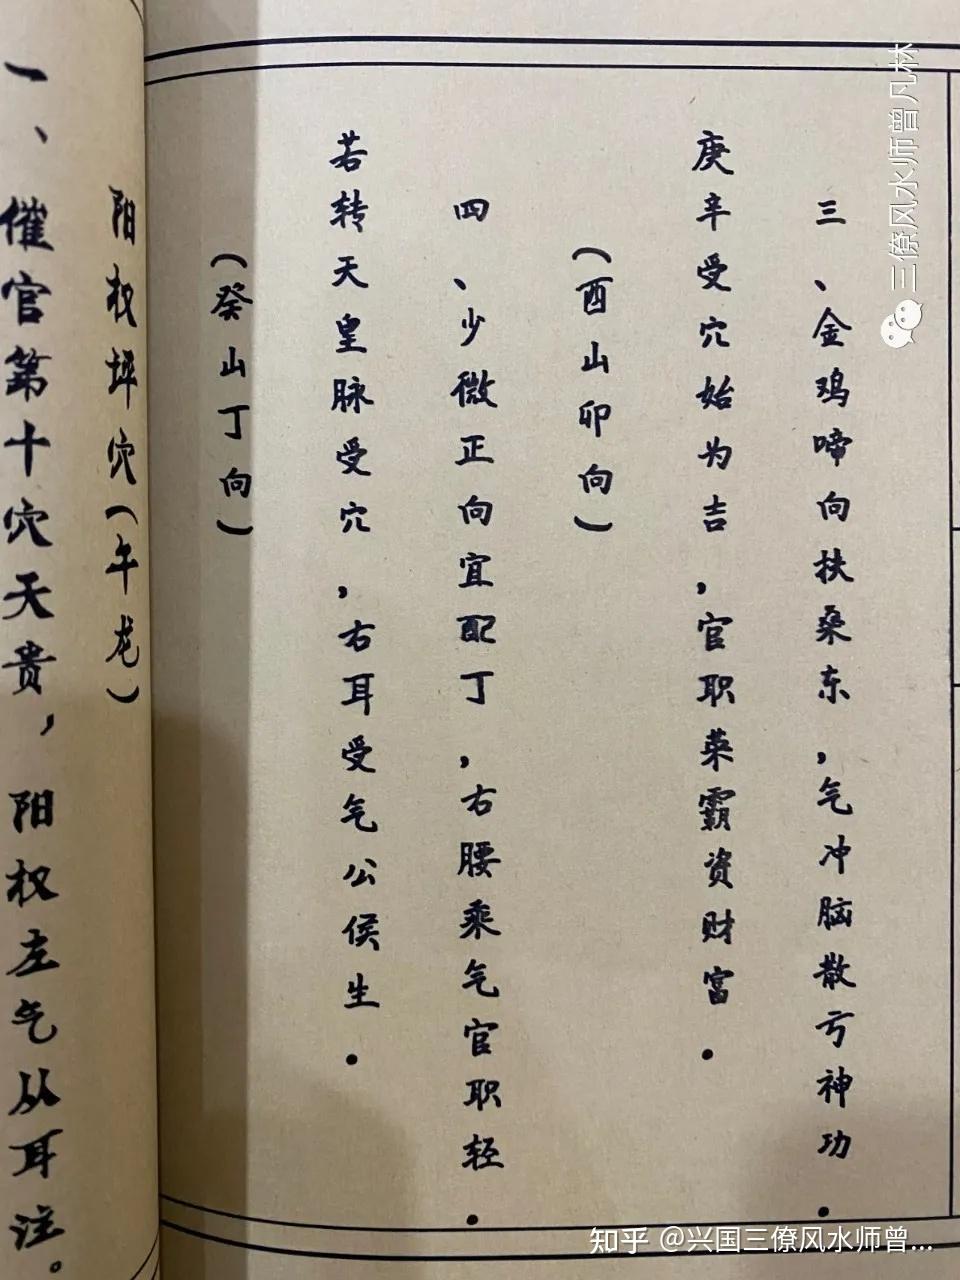 三、金鸡啼向扶桑东,气冲脑散亏神功.
庚辛受穴始为吉,官职荣霸资财富.
(酉山卯向)
四、少微正向宜配丁,右腰乘气官职轻.
若转天皇脉受穴,右耳受气公侯生.
(癸山丁向)
阳权坪穴(午龙)
一、催官第十穴天贵,阳权左气从耳注。
三僚风水师曾凡林
知乎 @兴国三僚风水师曾...